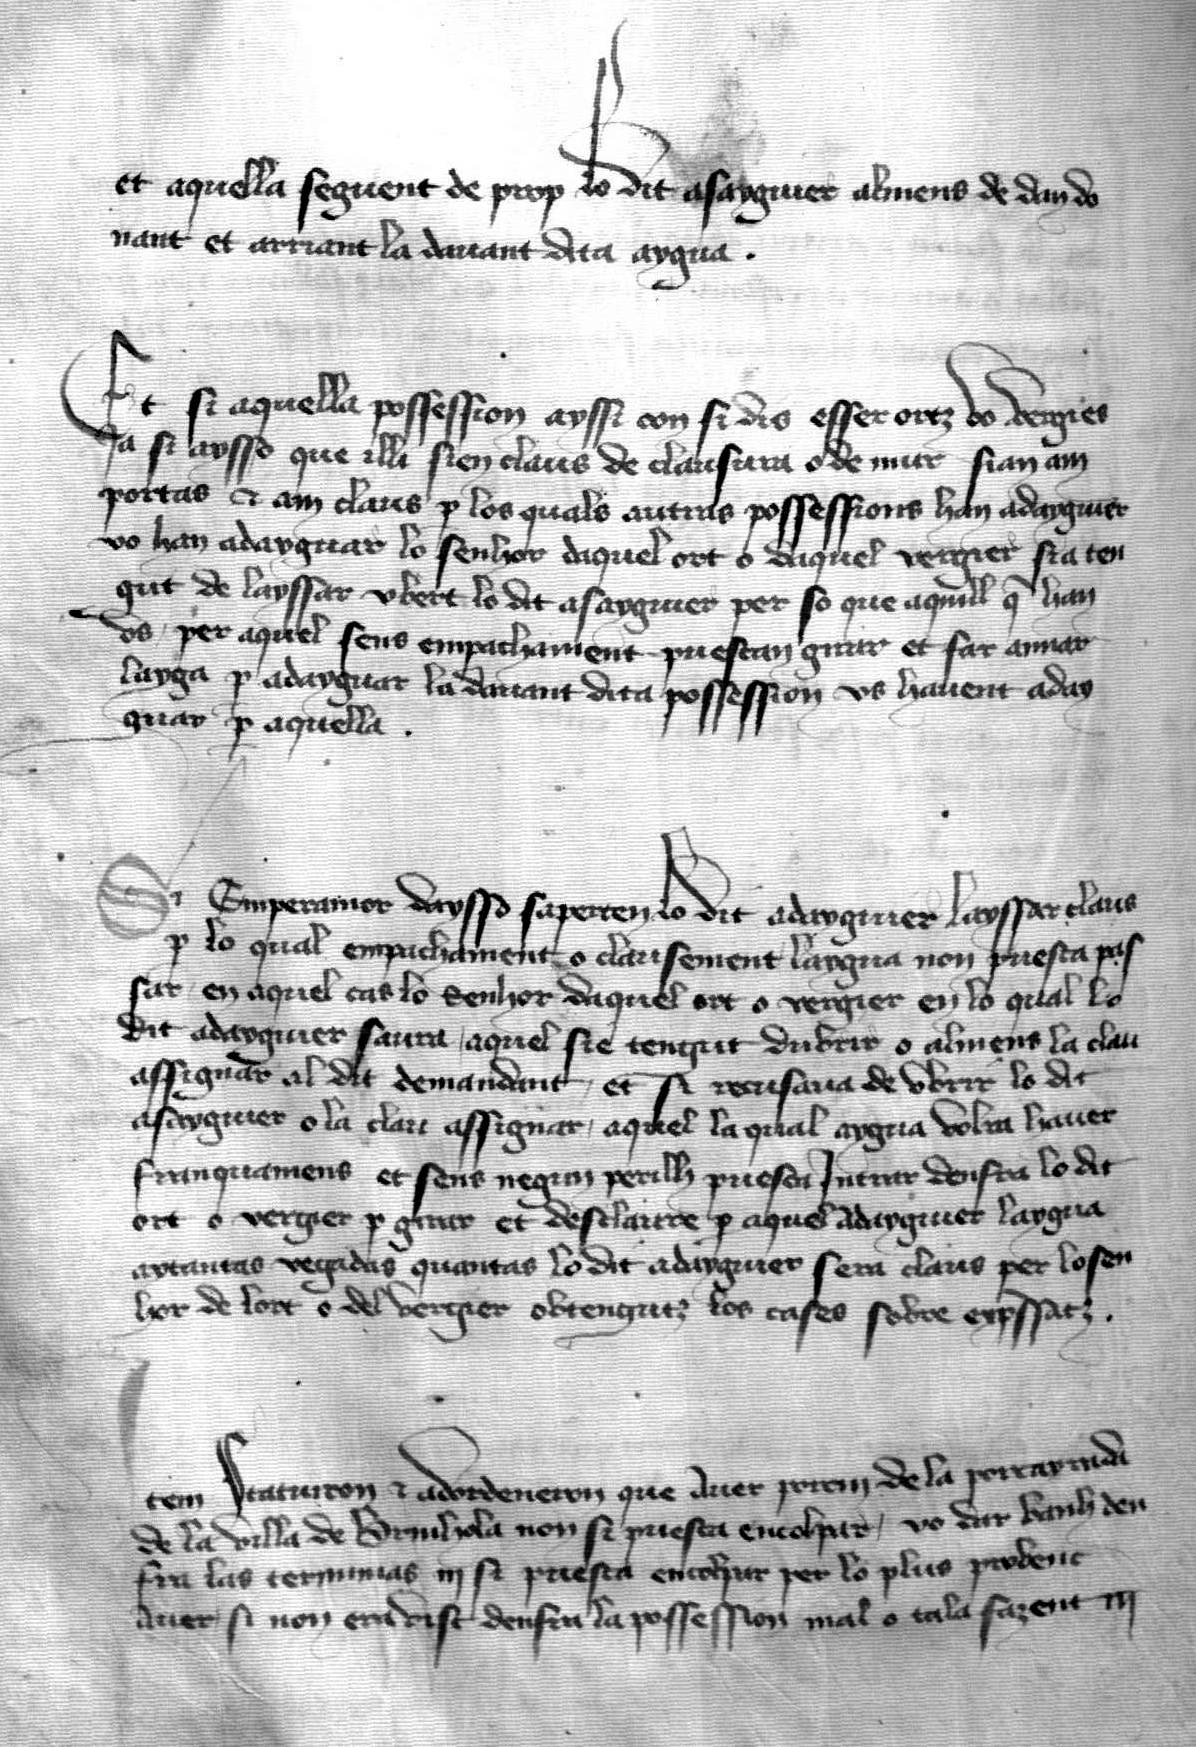 et aquella seguent de prop lo dit asayguier almens de dan do
nant et arriant la dauant dita aygua .
Et si aquella possession ayssi con si dis esser ortz vo vergies
Ja si aysso que illi sien claus de clausura o de mur sian am
portas & am claus p los quals autras possessions han adayguier
vo han adayguar lo senhor daquel ort o daquel vergier sia ten
gut de layssar vbert lo dit asayguier per so que aquill q han
vs per aquel sens empachament puescan guar et far annar
layga p adayguar la dauant dita possession vs hauent aday
guar p aquella .
Si Emperamor daysso saperten lo dit adayguier layssar claus
p lo qual empachament o clausement laygua non puesca pas
sar en aquel cas lo senhor daquel ort o vergier en lo qual lo
dit adayguier saura aquel sie tengut dubrir o almens la clau
assignar al dit demandant et si recusaua de vbrir lo dit
asayguier o la clau assignar aquel la qual aygua volra hauer
franquamens et sens negun perilh puesca Intrar denfra lo dit
ort o vergier p guar et desclaure p aquel adayguier laygua
aytantas vegadas quantas lo dit adayguier sera claus per lo sen
hor de lort o del vergier obtengutz los cases sobre expssatz .
tem Statuiron & adordeneron que Auer de la
de la villa de Brinhola non si puesca encolpar vo dar banh den
fra las terminias ni si puesca encolpar per lo plus
Auer si non denfra la possession mal o tala fazent